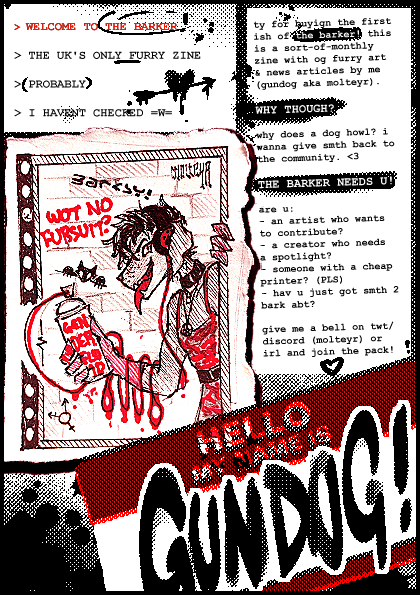 > WELCOME TO THE BARKER
> THE UK'S ONLY FURRY ZINE
>(PROBABLY)
> I HAVENT CHECKED =W=
barksy!
molteyr
WOT NO
FURSUIT?
GEN
DER
FLU
ID
ty for buyign the first
ish of the barker! this
is a sort-of-monthly
zine with og furry art
& news articles by me
(gundog aka molteyr).
WHY THOUGH?
why does a dog howl? i
wanna give smth back to
the community. <3
THE BARKER NEEDS U!
are u:
- an artist who wants
to contribute?
- a creator who needs
a spotlight?
- someone with a cheap
printer? (PLS)
- hav u just got smth 2
bark abt?
give me a bell on twt/
discord (molteyr) or
irl and join the pack!
HELLO
MY NAME IS
GUNDOG!